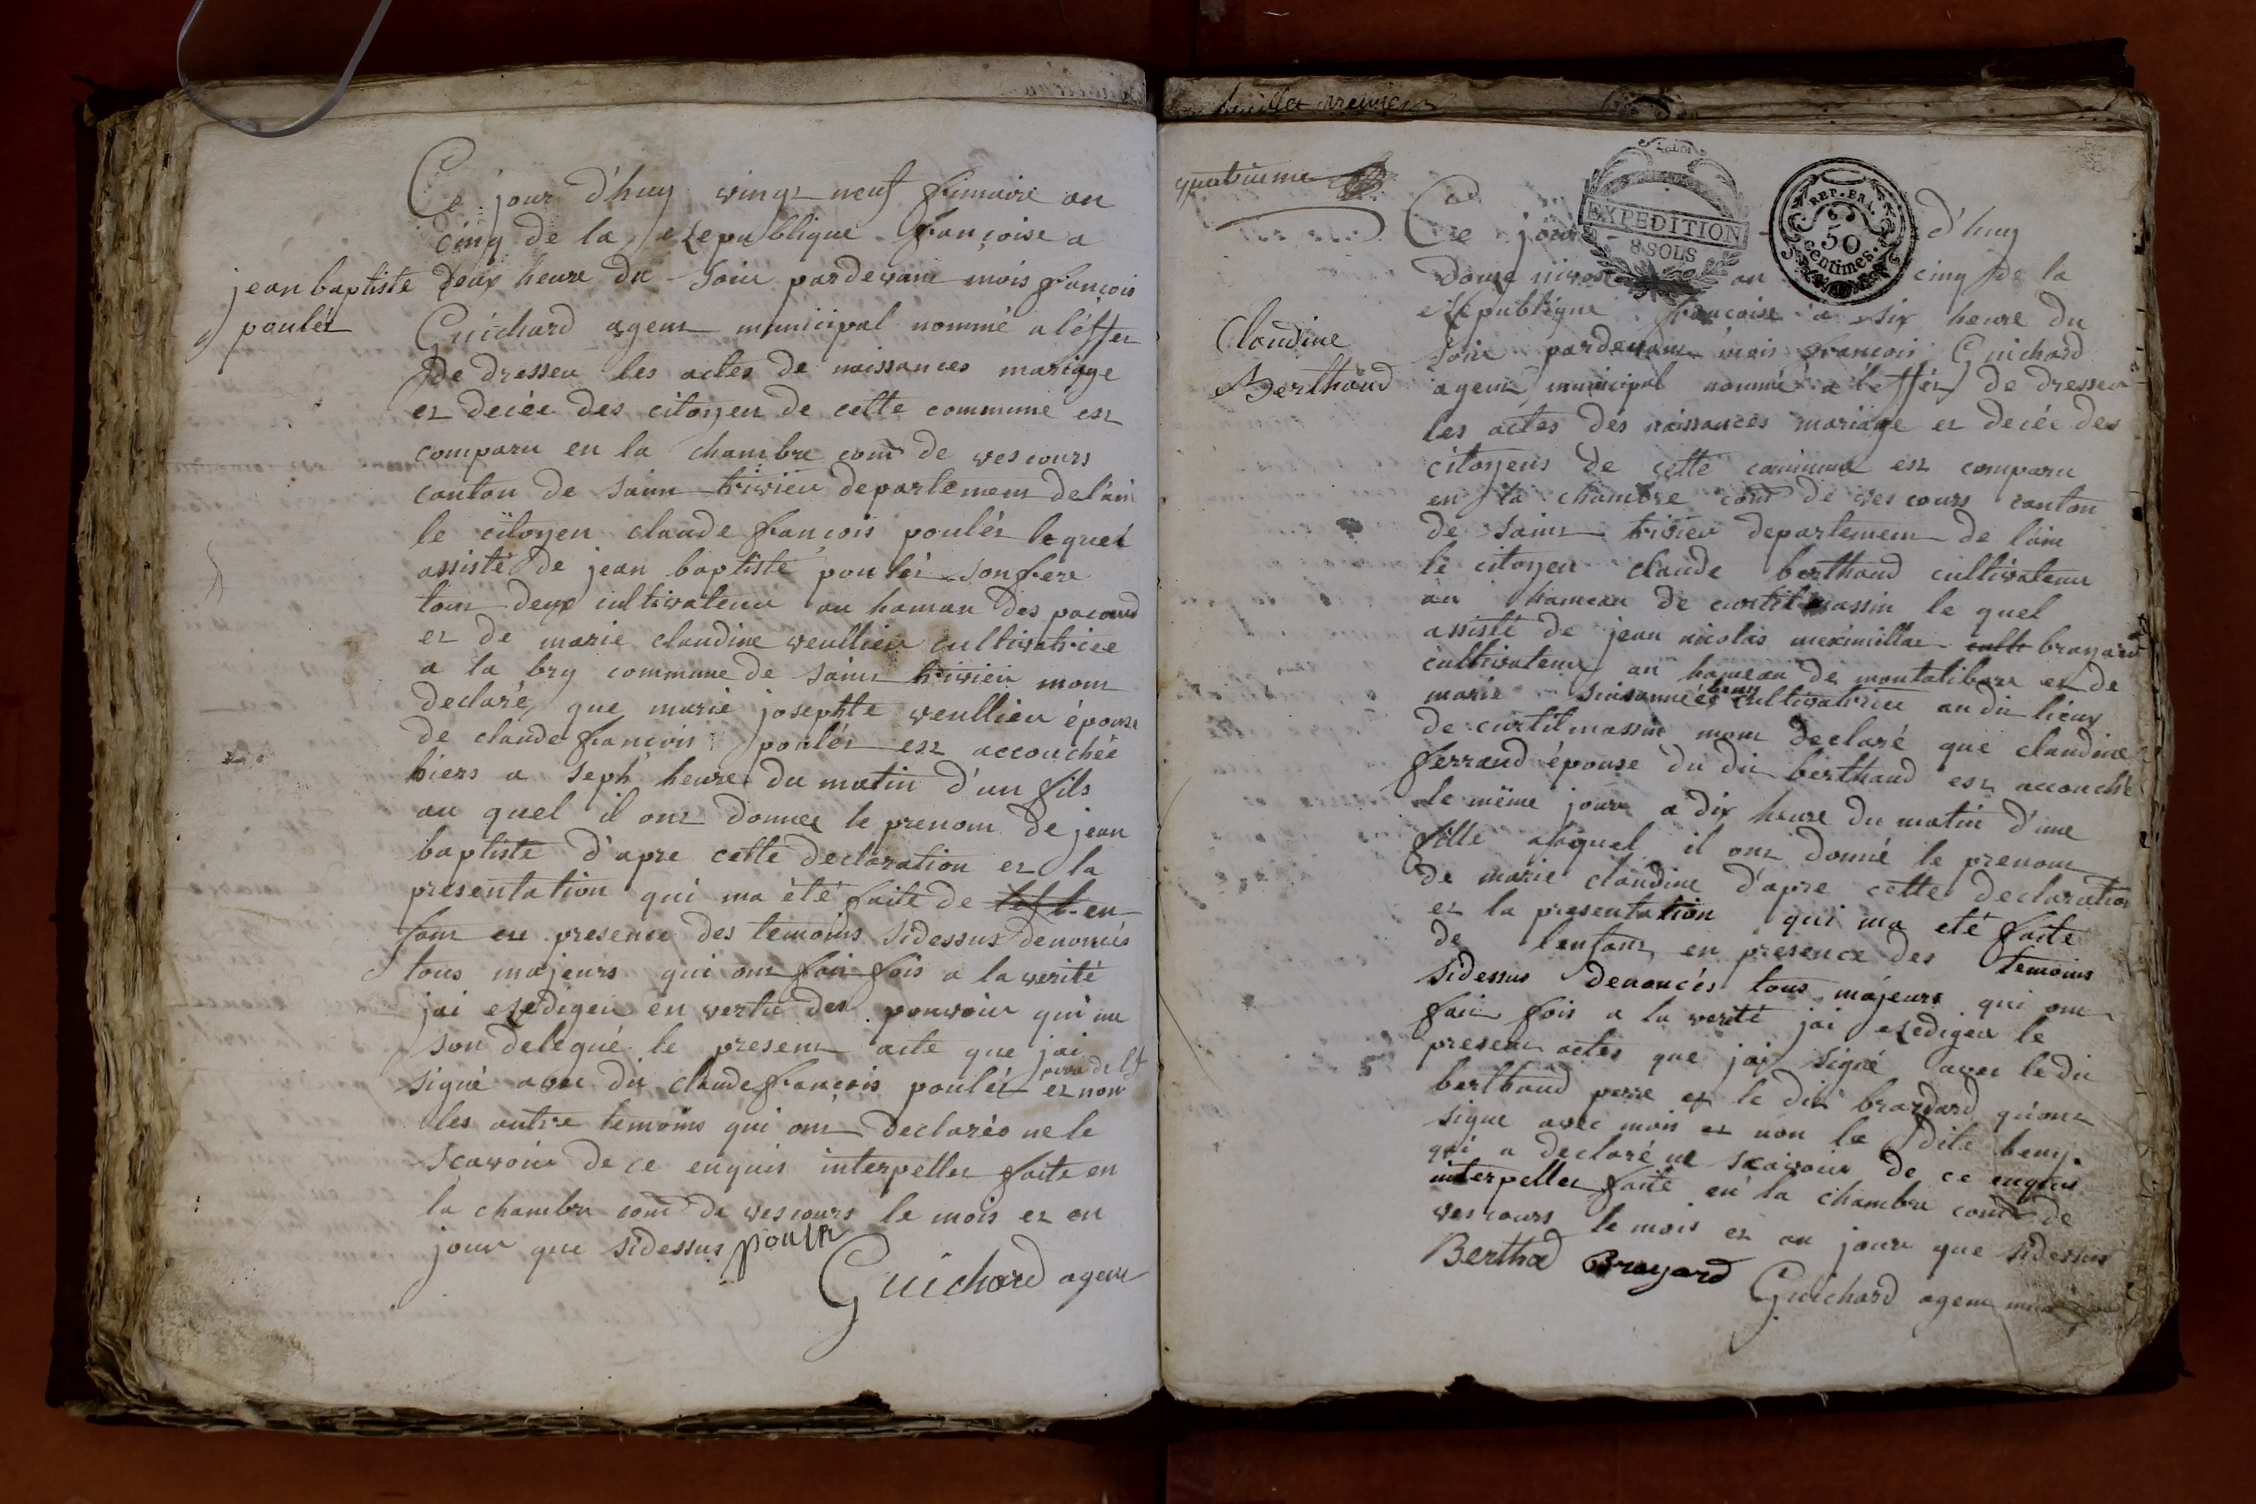 Ce jour d'huy vingt neuf frimaire an
cinq de la Republique françoise a
jean baptiste
poulét
deux heure du soir pardevant mois françois
Guichard agent municipal nommé a l'éffet
de dresser les actes de naissances mariage
et decée des citoyen de cette commune est
comparu en la chambre com de vescours
canton de saint trivier departement de l'ain
le citoyen claude françois poulét le quel
assisté de jean baptiste poulét son frere
tout deux cultivateur au hamau des pacaud
et de marie claudine veullien cultivatrice
a la bry commune de saint trivier mont
declaré que marie josephte veullien épouse
de claude françois poulét est accouchée
hiers a seph heure du matin d'un fils
au quel il ont donnée le prenom de jean
baptiste d'apre cette declaration et la
presentation qui ma été faite de en
fant en presence des temoins sidessus denomés
tous majeurs qui ont fait fois a la verité
jai Rediger en vertu des pouvoir qui me
son delegué le present acte que jai
signé avec dit claude françois poulét et non
les autre temoins qui ont declarés ne le
scavoir de ce enquis interpeller faite en
la chambre com de vescours le mois et an
jour que sidessus poulet
Guichard agent
feuillet premier
quatrieme
EXPEDITION
8 SOLS
REP. FRA.
50
centimes
Ce jour d'huy
douze nivose an cinq de la
Claudine
Berthaud
Republique françoise a six heure du
soir pardevant mois françois Guichard
agent municipal nommé a l'effét de dresser
les actes des naissances mariage et decée des
citoyens de cette commune est comparu
en la chambre com de vescours canton
de saint trivier departement de l'ain
le citoyen claude berthaud cultivateur
au hameau de curtil massin le quel
assisté de jean nicolas meximillae cult brayard
cultivateur au hameau de montalibore et de
marie beny cultivatrice au dit lieux
de curtil massin mont declaré que claudine
ferraud épouse du dit berthaud est accouché
le même jour a dix heure du matin d'une
fille alaquel il ont donné le prenom
de marie claudine d'apre cette declaration
et la presentation qui ma eté faite
de lenfant en presence des temoins
sidessus denoncés tous majeurs qui ont
fait fois a la verité jai Rediger le
present actes que jai signé avec ledit
berthaud perre et le dit brayard qu'ont
signe avec mois et non la dite beny
qui a declaré ne scavoir de ce enquis
interpeller faite en la chambre com de
vescours le mois et an jour que sidessus
Berthod Brayard
Guichard agent